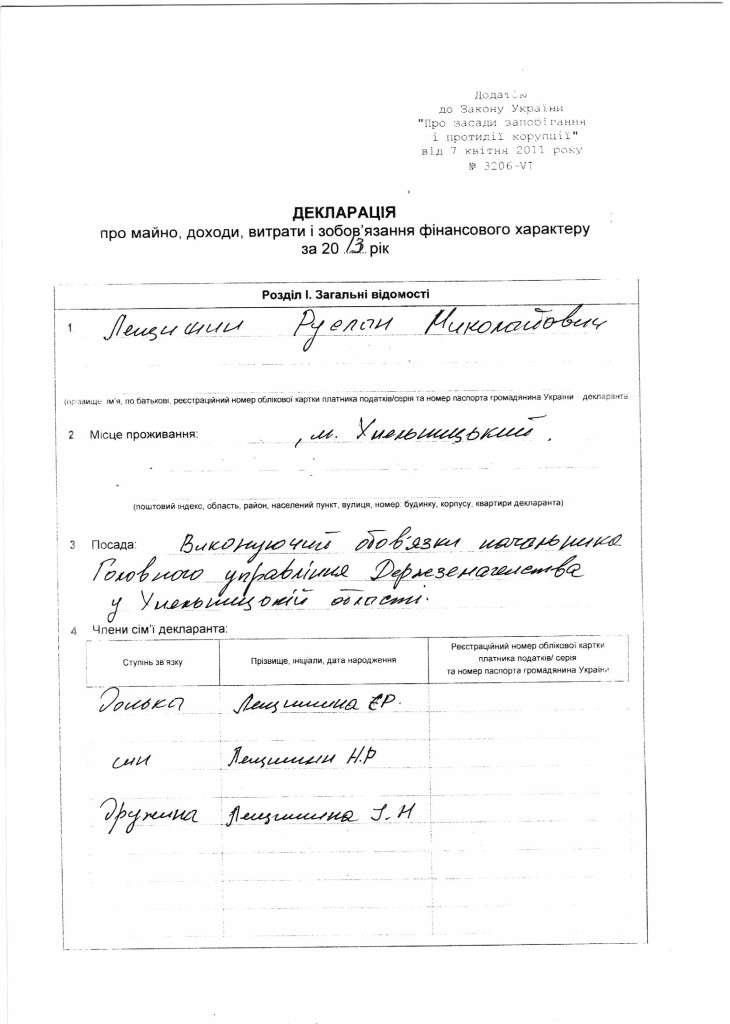 Додаток
до Закону України
"Про засади запобігання
і протидії корупції"
від 7 квітня 2011 року
№ 3206-VI
ДЕКЛАРАЦІЯ
про майно, доходи, витрати і зобов'язання фінансового характеру
за 2013 рік
Розділ I. Загальні відомості
1 Лещишин Руслан Миколайович
(прізвище, ім'я, по батькові, реєстраційний номер облікової картки платника податків/серія та номер паспорта громадянина України декларанта
2 Місце проживання: , м. Хмельницький.
(поштовий індекс, область, район, населений пункт, вулиця, номер: будинку, корпусу, квартири декларанта)
3 Посада: Виконуючий обов'язки начальника
Головного управління Держземагенства
у Хмельницькій області.
4 Члени сім'ї декларанта:
Ступінь зв'язку Прізвище, ініціали, дата народження Реєстраційний номер облікової картки
платника податків/ серія
та номер паспорта громадянина України
Донька Лещишина Є.Р.
син Лещишин Н.Р
Дружина Лещишина І.М